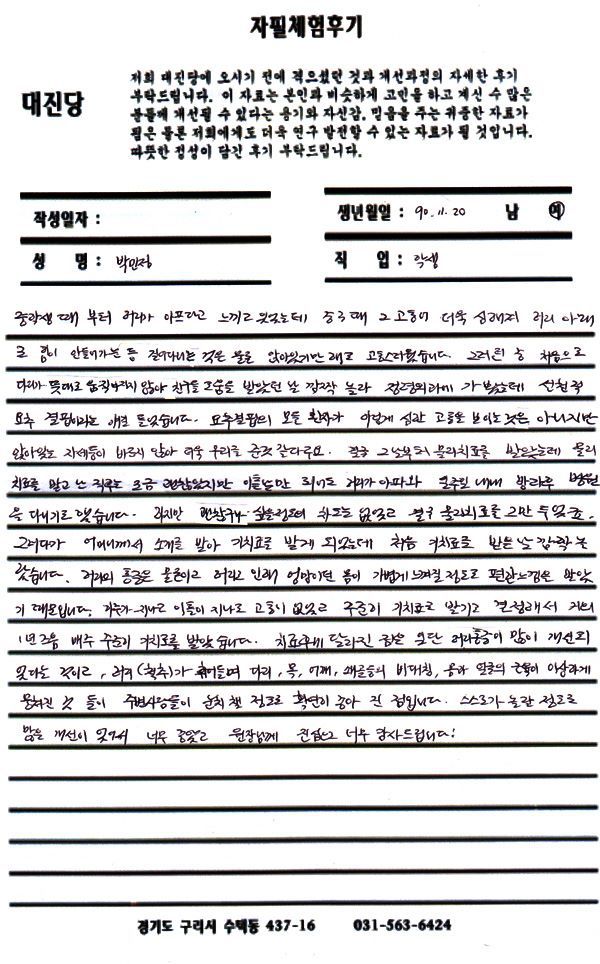 자필체험후기
대진당
저희 대진당에 오시기 전에 겪으셨던 것과 개선과정의 자세한 후기
부탁드립니다. 이 자료는 본인과 비슷하게 고민을 하고 계신 수 많은
분들께 개선될 수 있다는 용기와 자신감, 믿음을 주는 귀중한 자료가
됨은 물론 저희에게도 더욱 연구 발전할 수 있는 자료가 될 것입니다.
따뜻한 정성이 담긴 후기 부탁드립니다.
작성일자 :
생년월일 : 90.11.20 남 여
성 명 : 박민정
직 업 : 학생
중학생 때 부터 허리가 아프다고 느끼고 있었는데 중3때 그 고통이 더욱 심해져 허리 아래
로 힘이 안들어가는 등 걸어다니는 것은 물론 앉아있기만 해도 고통스러웠습니다. 그러던 중 처음으로
다리가 뜻대로 움직여지지 않아 친구들 도움을 받았던 날 깜짝 놀라 정형외과에 가 봤는데 선천적
요추 결핍이라는 얘기를 들었습니다. 요추결핍의 모든 환자가 이렇게 심한 고통을 보이는것은 아니지만
앉아있는 자세등이 바르지 않아 더욱 무리를 준것 같다구요. 결국 그날부터 물리치료를 받았는데 물리
치료를 받고 난 직후는 조금 괜찮았지만 이틀정도만 되어도 허리가 아파와 일주일 내내 병원
을 다니기도 했습니다. 하지만 괜찮구나 싶을정도의 차도는 없었고 결국 물리치료를 그만 두었죠.
그러다가 어머니께서 소개를 받아 기치료를 받게 되었는데 처음 기치료를 받은 날 깜짝 놀
랐습니다. 허리의 통증은 물론이고 허리로 인해 엉망이던 몸이 가볍게 느껴질 정도로 편안느낌을 받았
기 때문입니다. 하루가 지나고 이틀이 지나도 고통이 없었고 꾸준히 기치료를 받기로 결정해서 거의
1년 2개월 매주 꾸준히 기치료를 받았습니다. 치료후에 달라진 점은 일단 허리통증이 많이 개선되
었다는 것이고, 허리(척추)가 휘어들며 다리, 목, 어깨, 얼굴등의 비대칭, 몸과 얼굴의 근육이 이상하게
뭉쳐진 것 들이 주변사람들이 눈치 챌 정도로 확연히 좋아 진 점입니다. 스스로가 놀랄 정도로
많은 개선이 있어서 너무 좋았고 원장님께 진심으로 너무 감사드립니다!
경기도 구리시 수택동 437-16 031-563-6424